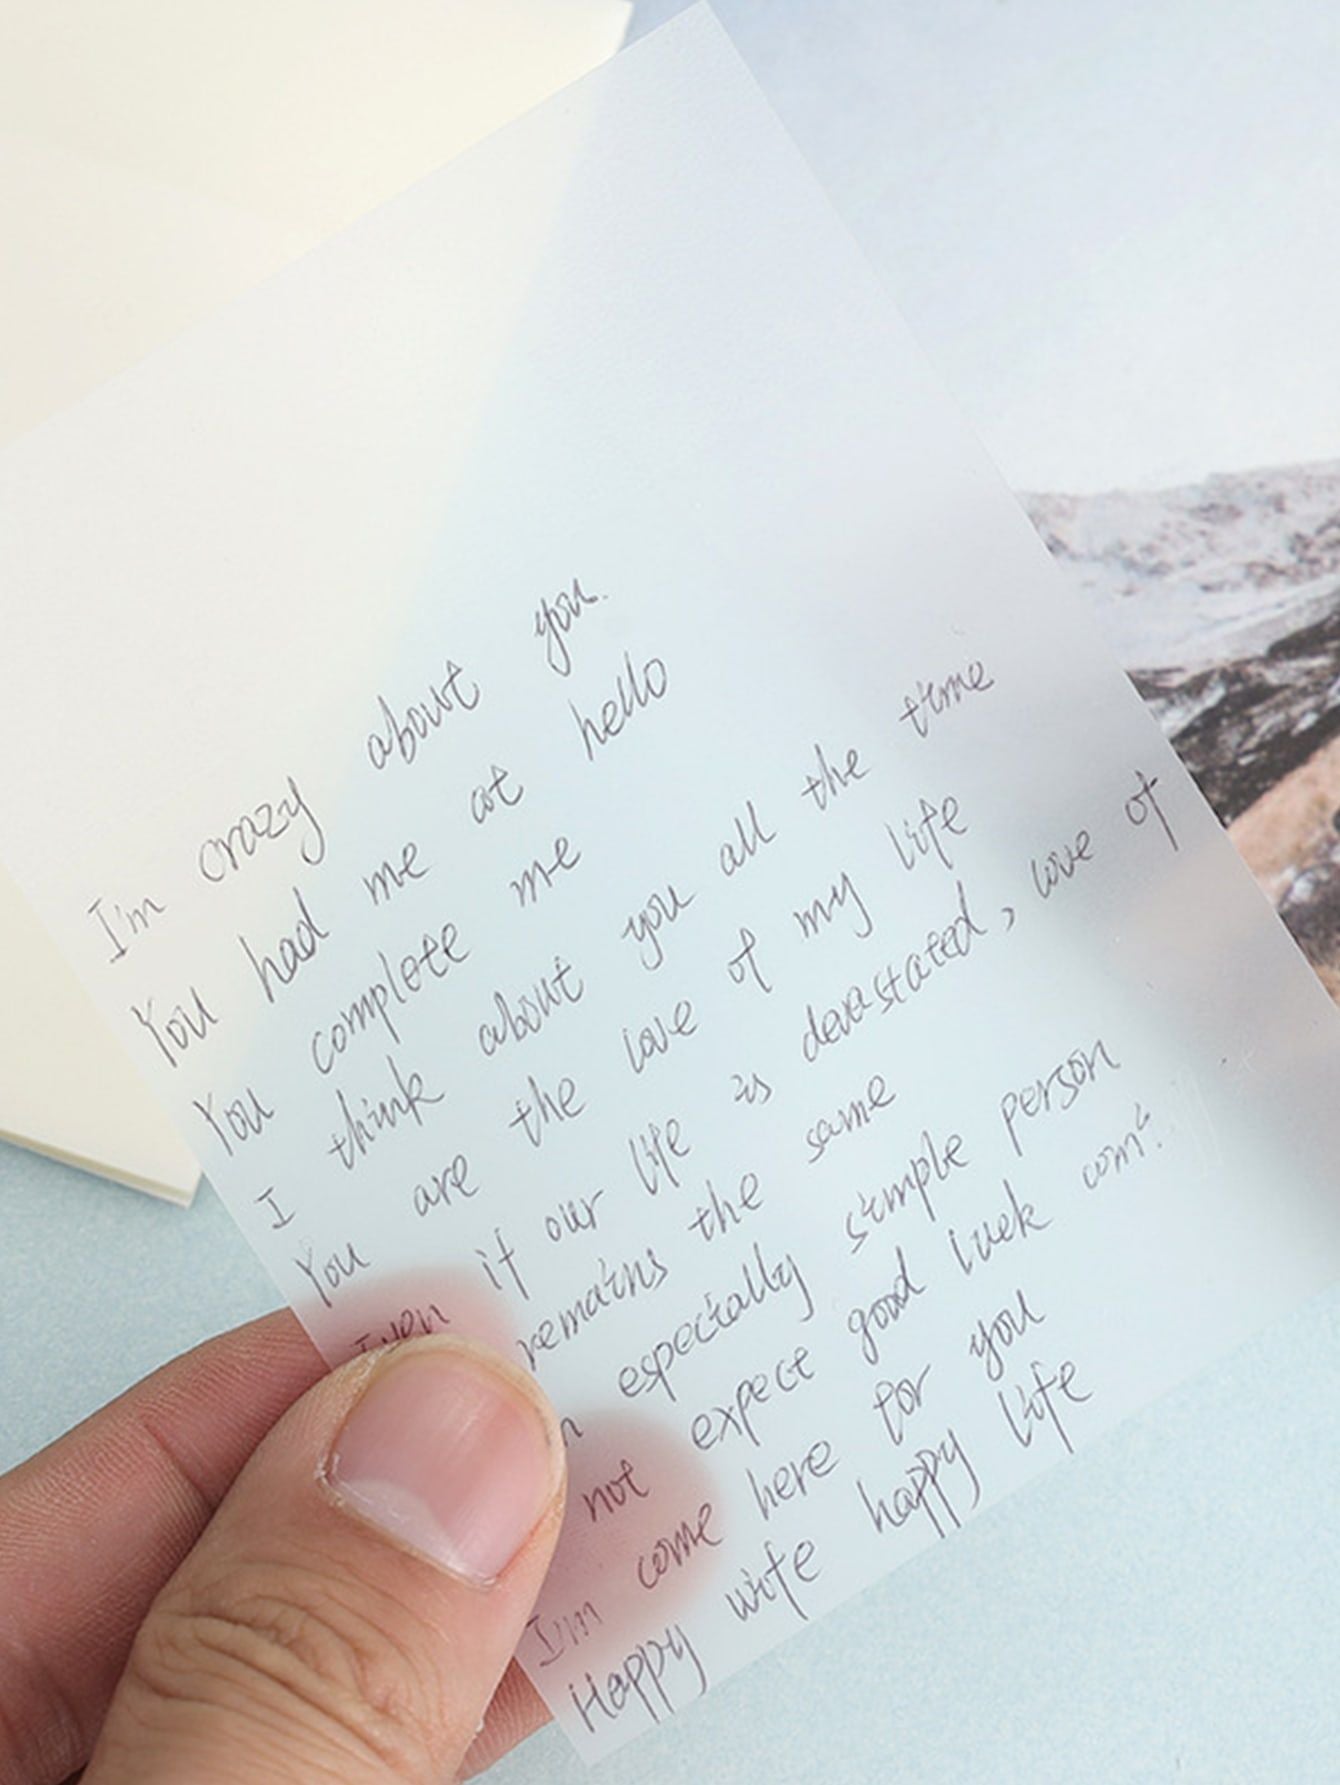 I'm crazy about you.
You had me at hello
You complete me
I think about you all the time
You are the love of my life
Even if our life is devastated, love of
remains the same
especially simple person
not expect good luck
I'm come here for you
Happy wife happy life